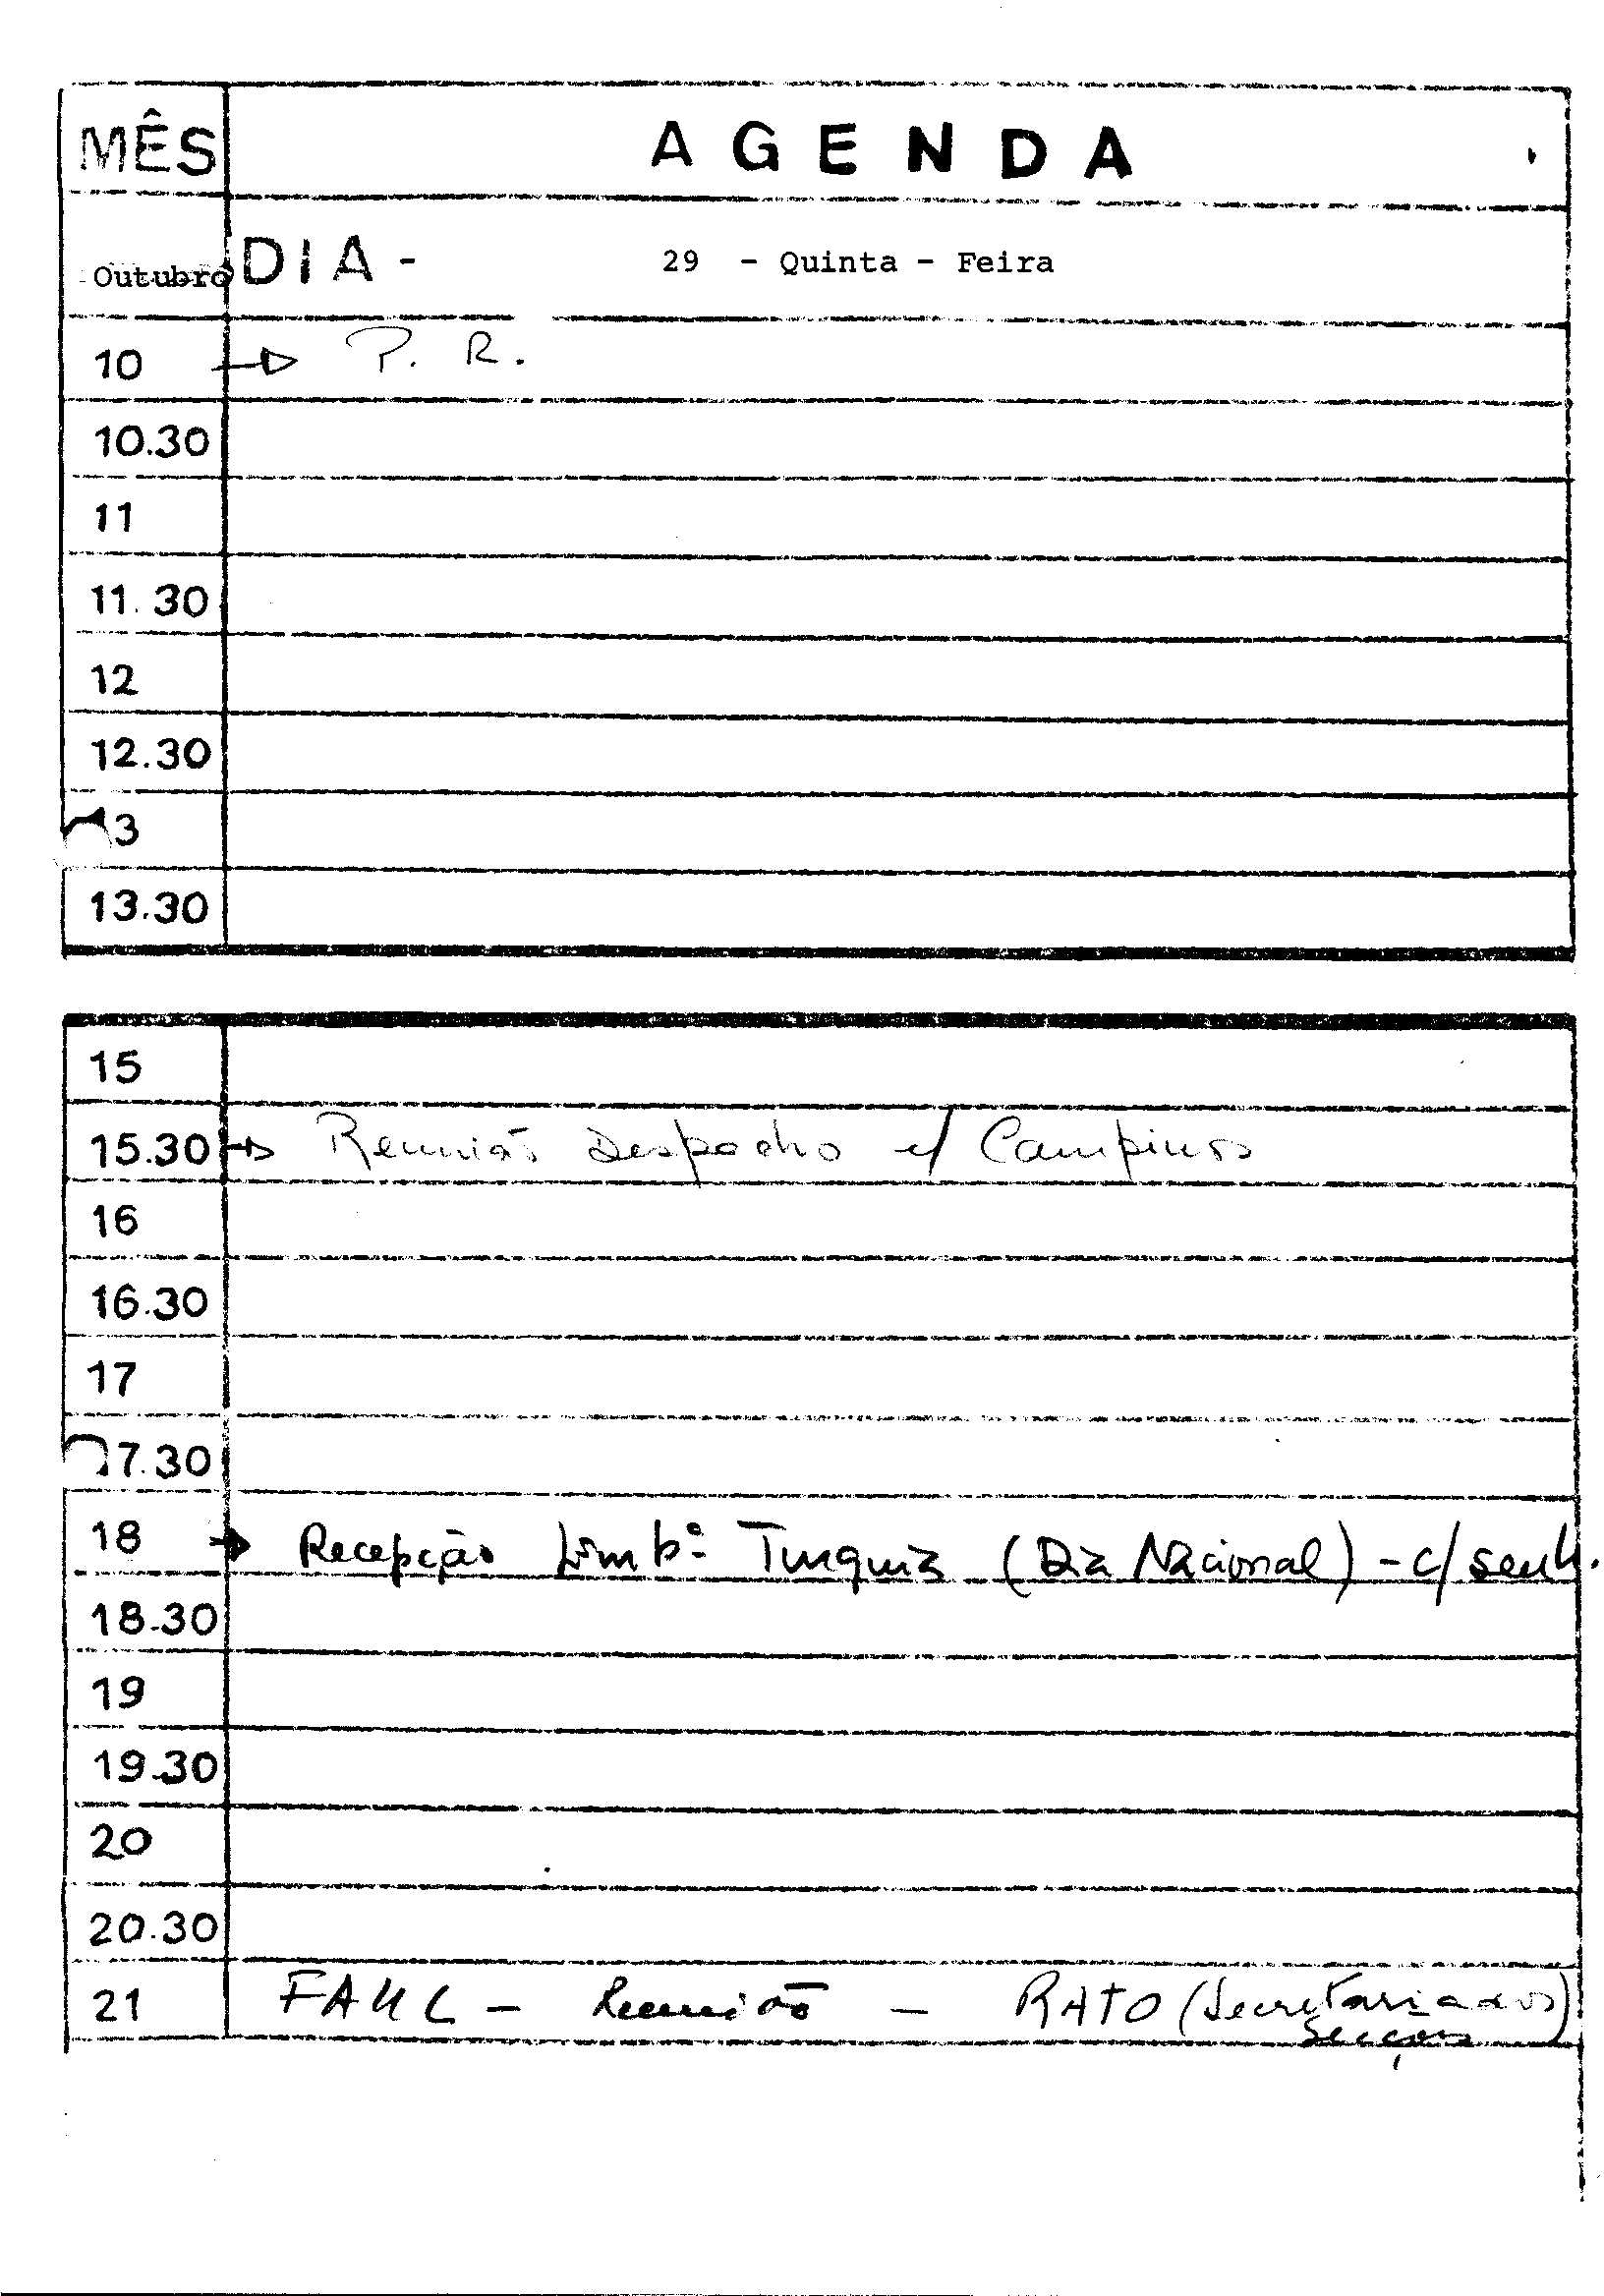 MÊS AGENDA
Outubro DIA - 29 - Quinta - Feira
10 P. R.
10.30
11
11.30
12
12.30
13
13.30
15
15.30 Reunião Despacho c/ Campinos
16
16.30
17
17.30
18 Recepção Turquia (Dia Nacional) - c/ senh.
18.30
19
19.30
20
20.30
21 FAUL - Reunião - RATO (Secretariados
Secções)